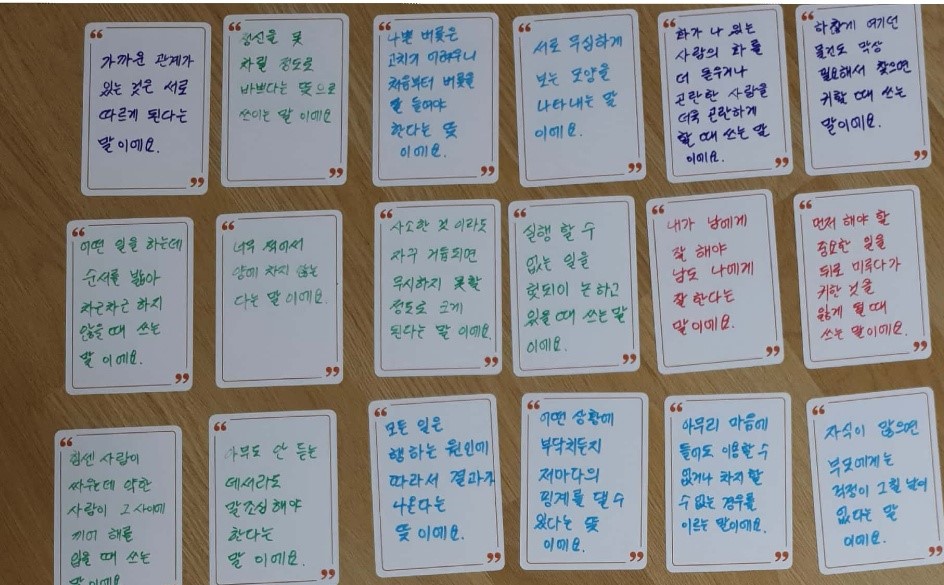 가까운 관계가
있는 것은 서로
따르게 된다는
말이에요.
정신을 못
차릴 정도로
바쁘다는 뜻으로
쓰이는 말이에요
나쁜 버릇은
고치기 어려우니
처음부터 버릇을
잘 들여야
한다는 뜻
이에요.
서로 무심하게
보는 모양을
나타내는 말
이에요.
화가 나 있는
사람의 화를
더 돋우거나
곤란한 사람을
더욱 곤란하게
할 때 쓰는 말
이에요.
하찮게 여기던
물건도 막상
필요해서 찾으면
귀할 때 쓰는
말이에요.
어떤 일을 하는데
순서를 밟아
차근차근 하지
않을 때 쓰는
말이에요.
너무 적어서
양에 차지 않는
다는 말이에요.
사소한 것이라도
자꾸 거듭되면
무시하지 못할
정도로 크게
된다는 말이에요.
실행 할 수
없는 일을
헛되이 논하고
있을 때 쓰는 말
이에요.
내가 남에게
잘 해야
남도 나에게
잘 한다는
말이에요.
먼저 해야 할
중요한 일을
뒤로 미루다가
귀한 것을
잃게 될 때
쓰는 말이에요.
힘센 사람이
싸우는데 약한
사람이 그 사이에
끼어 해를
입을 때 쓰는
말이에요
아무도 안 듣는
데서라도
말조심 해야
한다는
말이에요.
모든 일은
행하는 원인에
따라서 결과가
나온다는
뜻이에요.
어떤 상황에
부닥치든지
저마다의
핑계를 댈 수
있다는 뜻
이에요.
아무리 마음에
들어도 이용할 수
없거나 차지 할
수 없는 경우를
이르는 말이에요.
자식이 많으면
부모에게는
걱정이 그칠 날이
없다는 말
이에요.